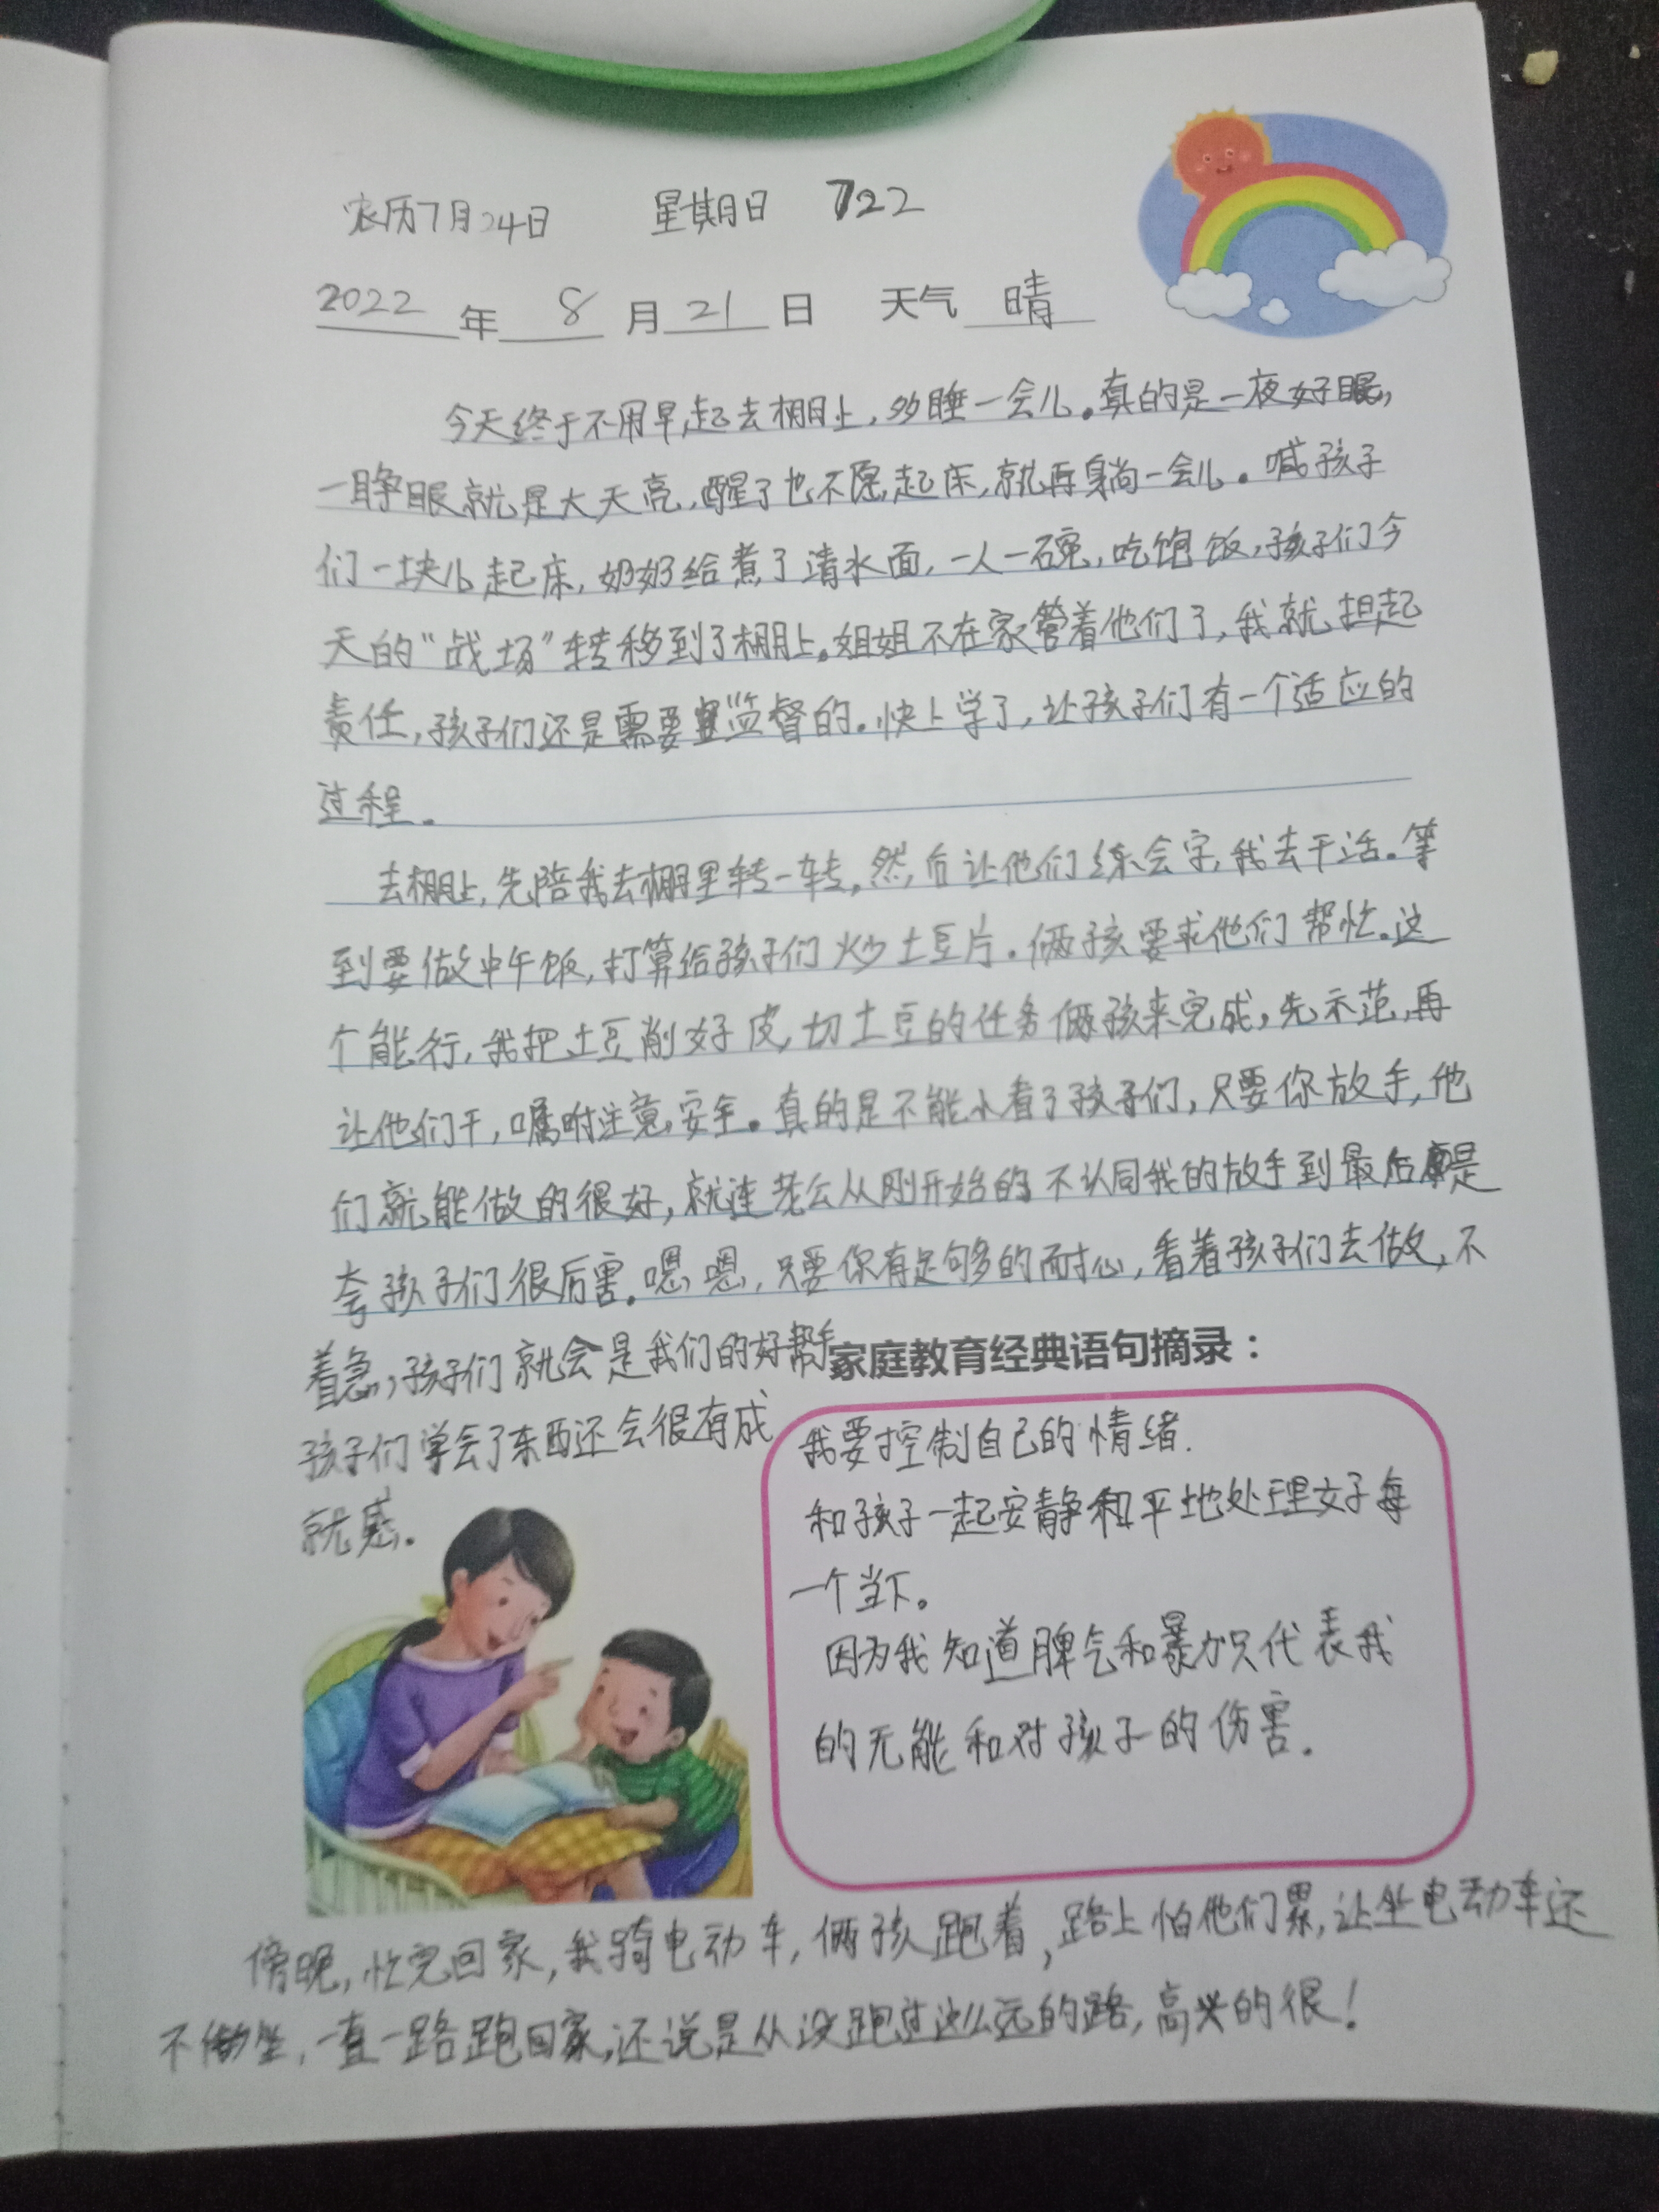 农历7月24日 星期日 722
2022年8月21日 天气 晴
今天终于不用早起去棚上,多睡一会儿。真的是一夜好眠,
一睁眼就是大天亮,醒了也不愿起床,就再躺一会儿。喊孩子
们一块儿起床,奶奶给煮了清水面,一人一碗,吃饱饭,孩子们今
天的“战场”转移到了棚上。姐姐不在家管着他们了,我就担起
责任,孩子们还是需要监督的。快上学了,让孩子们有一个适应的
过程。
去棚上,先陪我去棚里转一转,然后让他们练会字,我去干活。等
到要做中午饭,打算给孩子们炒土豆片。俩孩要求他们帮忙。这
个能行,我把土豆削好皮,切土豆的任务俩孩来完成,先示范,再
让他们干,嘱咐注意安全。真的是不能小看了孩子们,只要你放手,他
们就能做的很好,就连老公从刚开始的不认同我的放手到最后是
夸孩子们很厉害。嗯嗯,只要你有足够多的耐心,看着孩子们去做,不
着急,孩子们就会是我们的好帮手
孩子们学会了东西还会很有成
就感。
家庭教育经典语句摘录:
我要控制自己的情绪.
和孩子一起安静和平地处理好每
一个当下。
因为我知道脾气和暴力只代表我
的无能和对孩子的伤害.
傍晚,忙完回家,我骑电动车,俩孩跑着,路上怕他们累,让坐电动车还
不坐,一直一路跑回家,还说是从没跑过这么远的路,高兴的很!